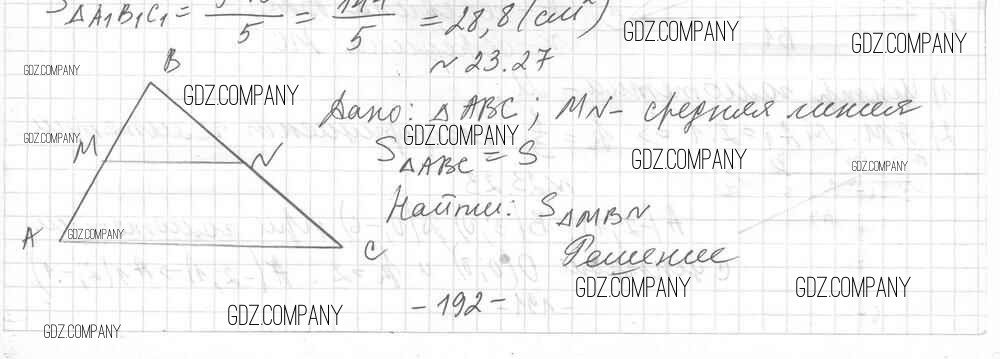 S△A₁B₁C₁ = /5 = 144/5 = 28,8 (см²)
~ 23.27
Дано: △ABC; MN – средняя линия
S△ABC = S
Найти: S△MBN
Решение
B
M N
A C
- 192 -
GDZ.COMPANY
GDZ.COMPANY
GDZ.COMPANY
GDZ.COMPANY
GDZ.COMPANY
GDZ.COMPANY
GDZ.COMPANY
GDZ.COMPANY
GDZ.COMPANY
GDZ.COMPANY
GDZ.COMPANY
GDZ.COMPANY
GDZ.COMPANY